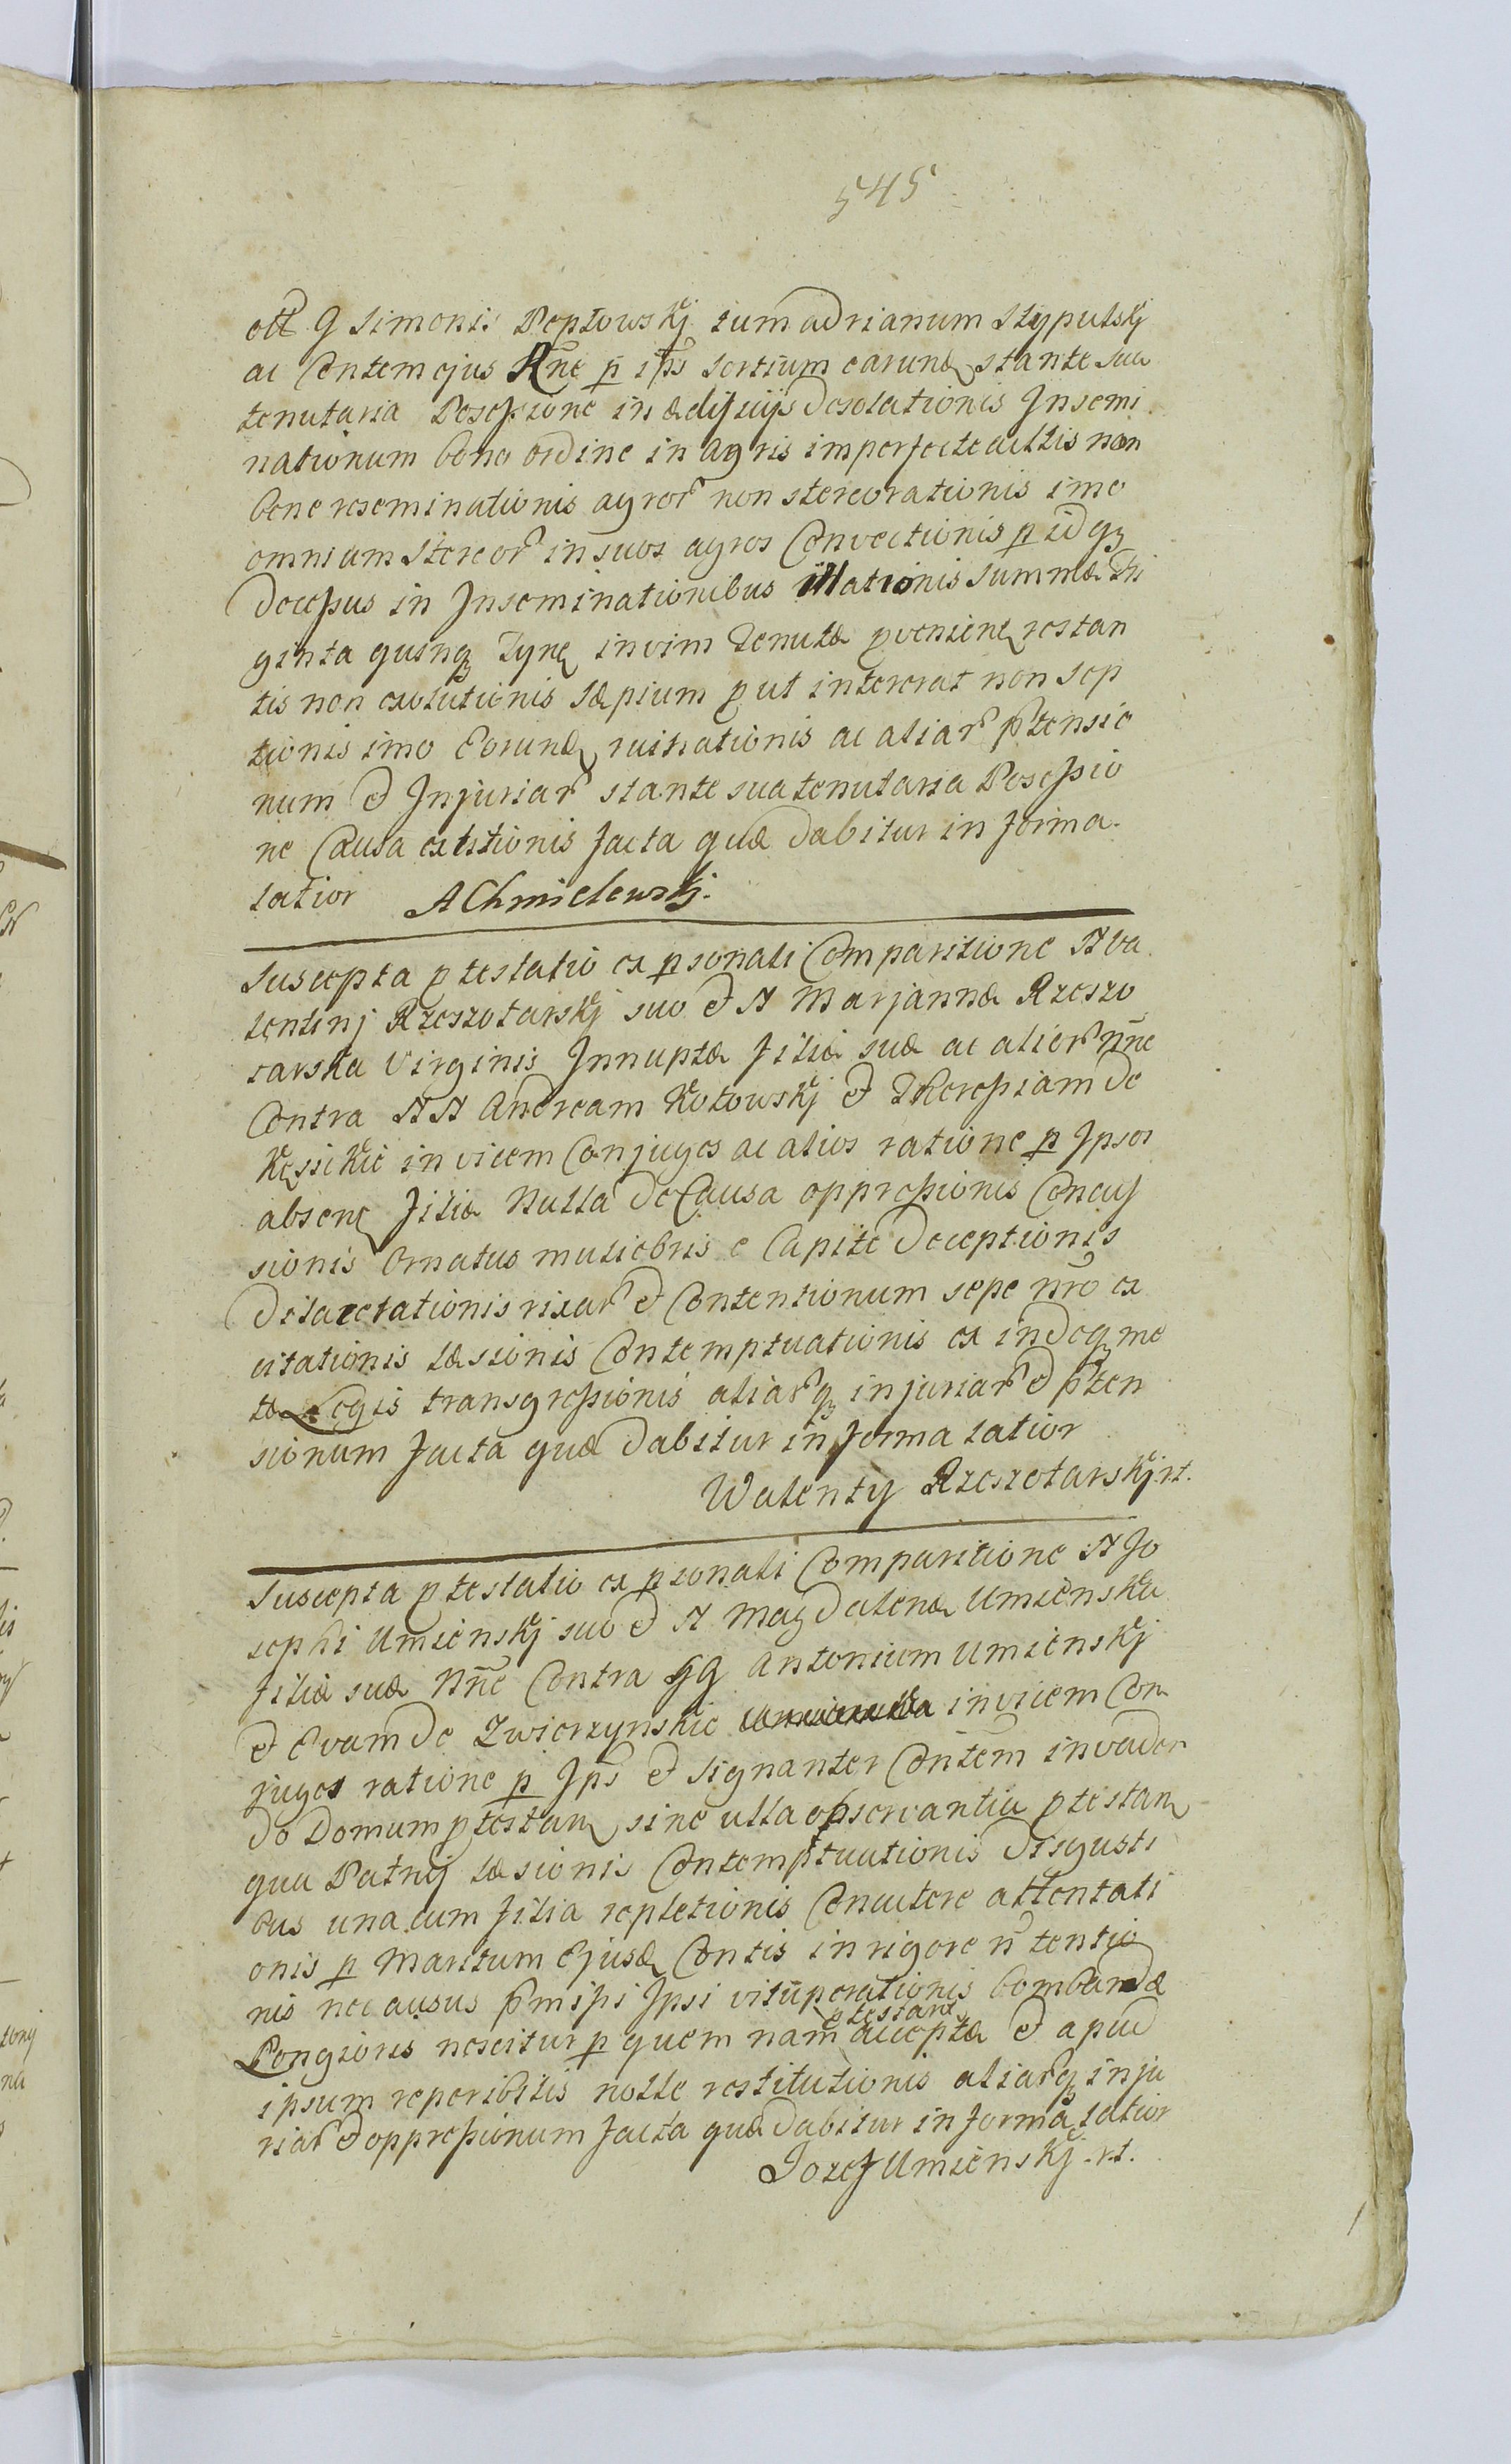 545
olt G Simonis Peptowskj tum adrianum Stypułskj
ac Contem ejus Rne p ips Sortium earund stante sua
tenutaria Posessione in ædificijs desolationis Insemi
nationum bono ordine in agris imperfecte actis non
bene reseminationis agror non stercorationis imo
omnium Stercor in suos agros Convectionis p id q3
decessus in Inseminationibus illationis Summæ Tri
ginta quinq Tynf in vim Tenutæ pvenient restan
tis non exolutionis Sæpium put intererat non Sep
tionis imo Eorund ruinationis ac aliar ptensio
num et Injuriar stante sua tenutaria Posessio
ne Causa extitionis facta quæ dabitur in forma
latior AChmielewskj.
Suscepta ptestatio ex psonali Comparitione N Va
lentinj Rzeszotarskj suo et N Marjannæ Rzeszo
tarska Virginis Innuptæ filiæ suæ ac alior nne
Contra NN Andream Kotowskj et Theressiam de
Kęssickie invicem Conjuges ac alios ratione p Ipsos
absent filiæ Nulla de Causa oppressionis Concus
sionis Ornatus muliebris e Capite deceptionis
dilacerationis rixar et Contentionum sepe nro ex
citationis læsionis Contemptuationis ex indeq me
tæ Legis transgressionis aliarq injuriar et pten
sionum facta quæ dabitur in forma latior
Walenty Rzeszotarskj rt.
Suscepta ptestatio ex psonali Comparitione N Jo
sephi Umienskj suo et N Magdalenæ Umienska
filiæ suæ Nne Contra GG Antonium Umienskj
et Evam de Zwierzynskie invicem Con
juges ratione p Ips et signanter Contem invaden
do Domum ptestan sine ulla observantia ptestan
qua Patruj læsionis Contemptuationis disgusti
bus una cum filia repletionis Concutere attentati
onis p Maritum Ejusd Contis in rigore n tentio
nis nec ausus pmissi Ipsi vituperationis bombardæ
Longioris nescitur p quem nam ptestant acceptæ et apud
ipsum reperibilis nolle restitutionis aliarq inju
riar et oppressionum facta quæ dabitur in forma latior
Jozef Umienskj .r.t.